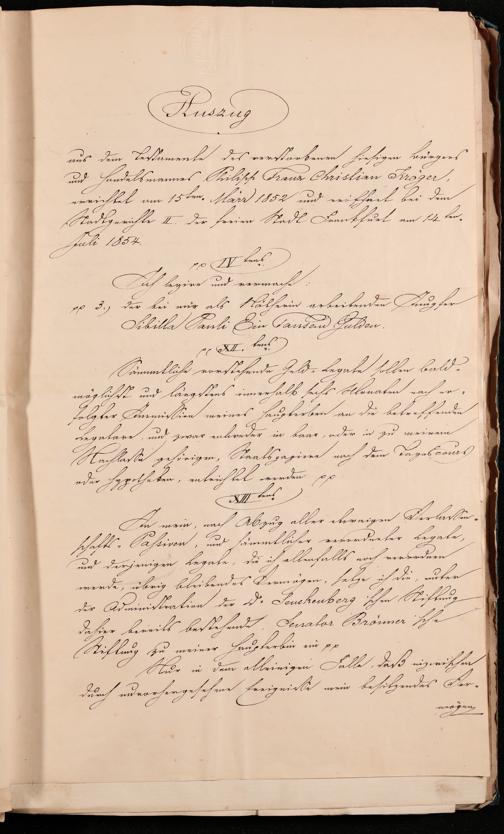 Auszug
aus dem Testamente des verstorbenen hiesigen Bürgers
und Handelsmannes Philipp Franz Christian Kröger,
errichtet am 15ten März 1852 und eröffnet bei dem
Stadtgerichte II der freien Stadt Frankfurt am 14ten
Juli 1854.
pp IVtens
Ich legire und vermache:
pp 3.) der bei mir als Nätherin arbeitenden Jungfer
Sibilla Pauli Ein Tausend Gulden.
pp XII.tens
Sämmtliche vorstehende Geld-Legate sollen bald-
möglichst und längstens innerhalb sechs Monaten nach er-
folgter Immission meines Haupterben an die betreffenden
Legatare, und zwar entweder in baar, oder in zu meinem
Nachlasse gehörigen, Staatspapieren nach dem Tagescours
oder Hypotheken, entrichtet werden pp
XIIItens
In mein, nach Abzug aller etwaigen Verlassen-
schafts-Passiven, und sämmtlicher verordneter Legate,
und derjenigen Legate, die ich allenfalls noch verordnen
werde, übrig bleibendes Vermögen, setze ich die, unter
der Administration der Dr. Senckenberg'schen Stiftung
dahier bereits bestehende, Senator Brönner'sche
Stiftung zu meiner Haupterbin ein pp
Nur in dem alleinigen Falle, daß inzwischen
durch unvorhergesehene Ereignisse mein besitzendes Ver-
mögen